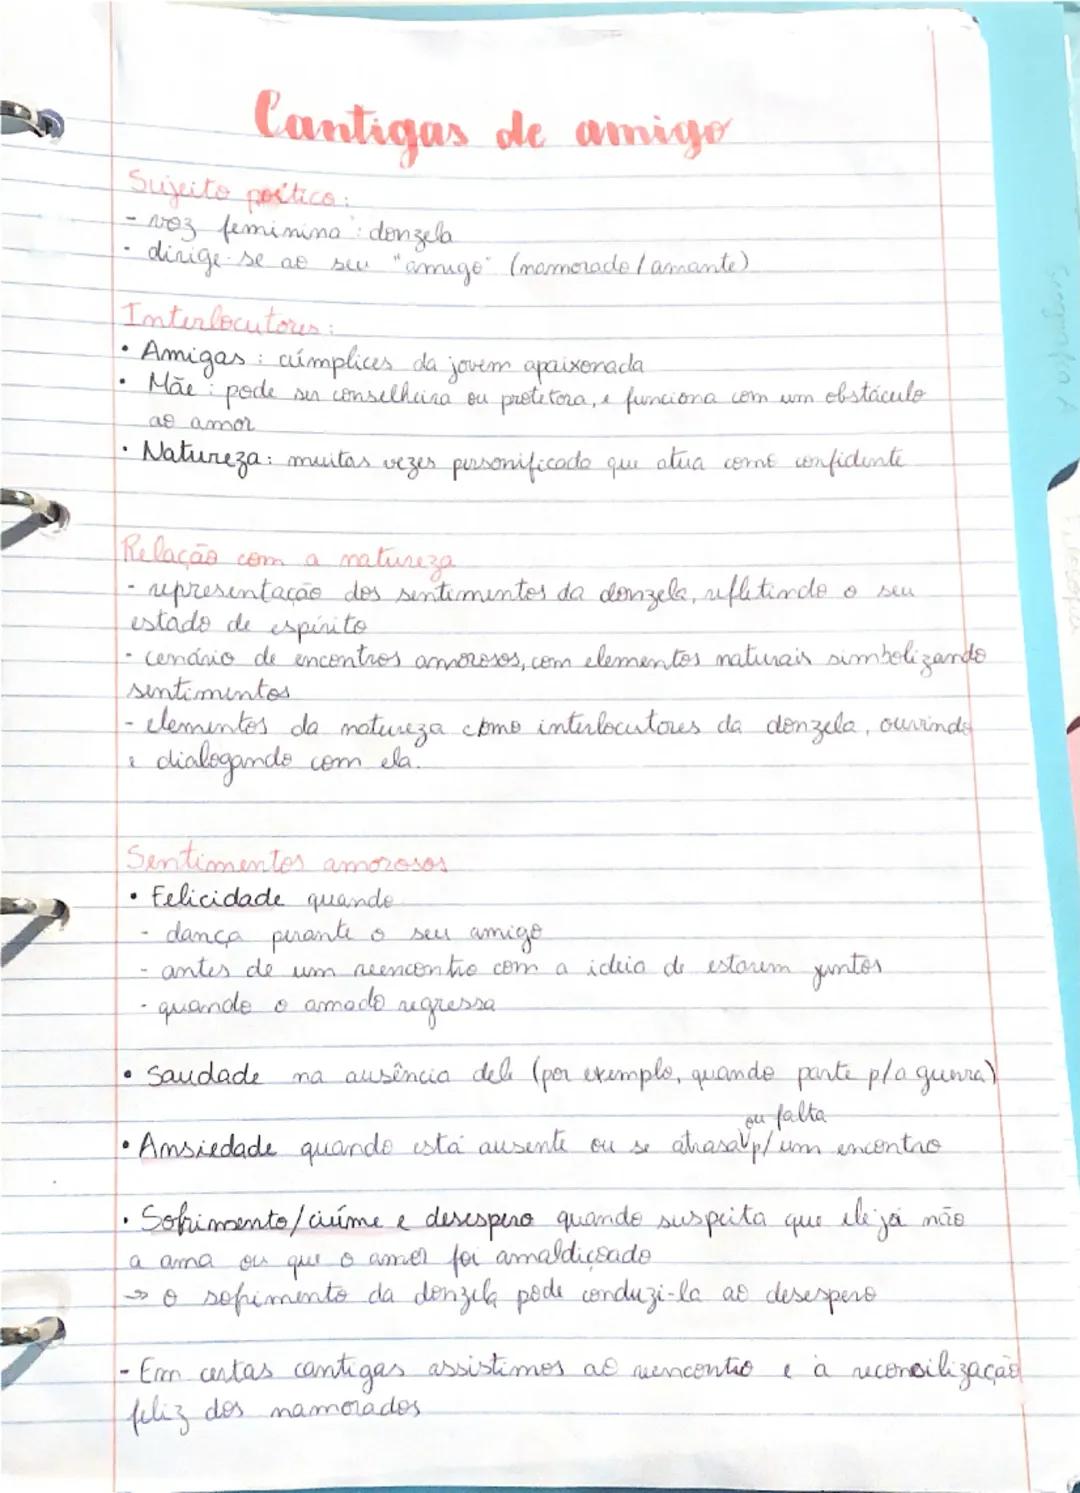 Cantigas de amigo
Sujeito poético:
- voz feminina: donzela
- dirige-se ao seu "amigo" (namorado/amante)
Interlocutores:
• Amigas: cúmplices da jovem apaixonada
• Mãe: pode ser conselheira ou protetora, e funciona com um obstáculo
ao amor
• Natureza: muitas vezes personificada que atua como confidente
Relação com a natureza
- representação dos sentimentos da donzela, refletindo o seu
estado de espírito
- cenário de encontros amorosos, com elementos naturais simbolizando
sentimentos
- elementos da natureza como interlocutores da donzela, ouvindo
e dialogando com ela.
Sentimentos amorosos
• Felicidade quando
- dança perante o seu amigo
- antes de um reencontro com a ideia de estarem juntos
- quando o amado regressa
• Saudade na ausência dele (por exemplo, quando parte p/a guerra)
ou falta
• Ansiedade quando está ausente ou se atrasa p/ um encontro
• Sofrimento/ciúme e desespero quando suspeita que ele já não
a ama ou que o amor foi amaldiçoado
→ o sofrimento da donzela pode conduzi-la ao desespero
- Em certas cantigas assistimos ao reencontro e à reconcilização
feliz dos namorados